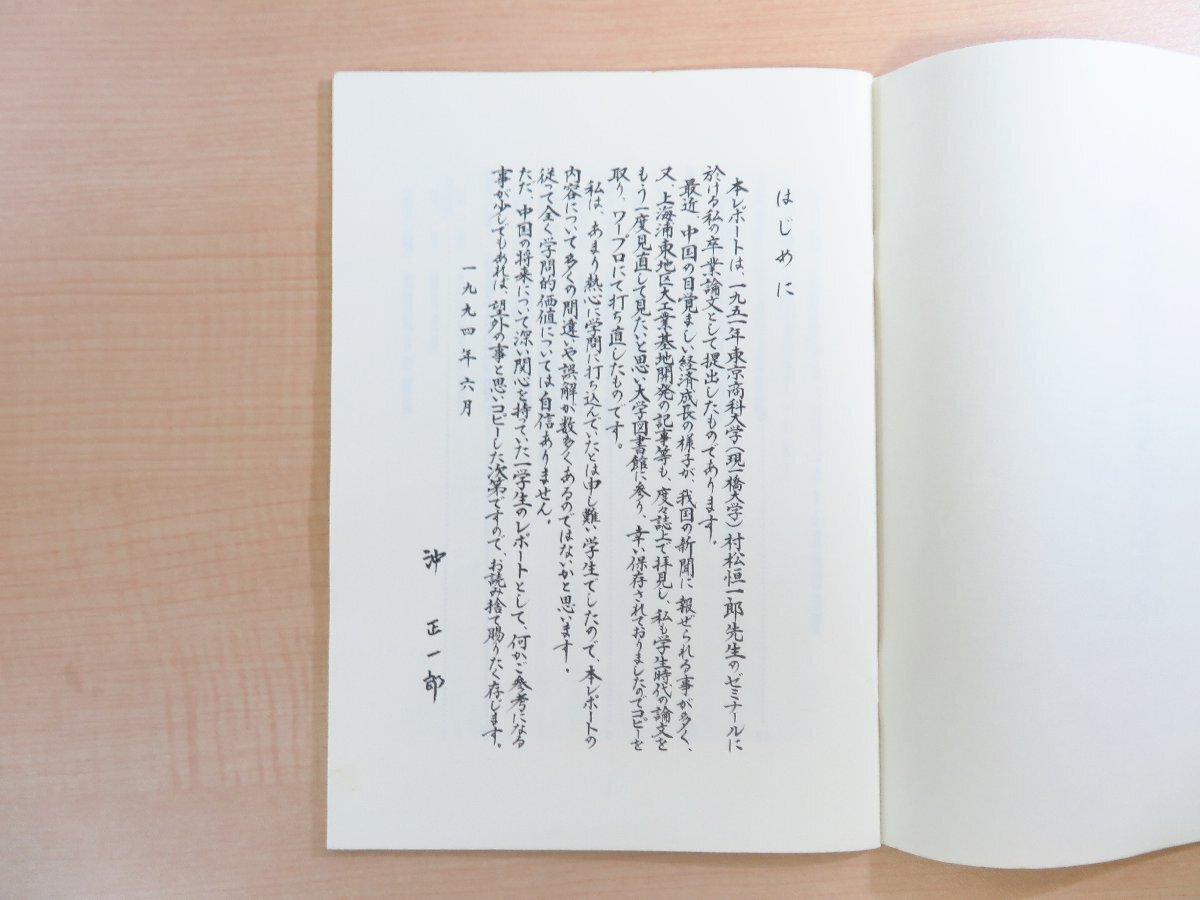 はじめに
本レポートは、一九五一年東京商科大学（現一橋大学）村松恒一郎先生のゼミナールに
於ける私の卒業論文として提出したものであります。
最近、中国の目覚ましい経済成長の様子が、我国の新聞に報ぜられる事が多く、
又、上海浦東地区大工業基地開発の記事等も、度々誌上で拝見し、私も学生時代の論文を
もう一度見直して見たいと思い大学図書館に参り、幸い保存されておりましたのでコピーを
取り、ワープロにて打ち直したものです。
私は、あまり熱心に学問に打ち込んでいたとは申し難い学生でしたので、本レポートの
内容について多くの間違いや誤解が数多くあるのではないかと思います。
従って全く学問的価値については自信ありません。
ただ、中国の将来について深い関心を持っていた一学生のレポートとして、何かご参考になる
事が少しでもあれば、望外の事と思いコピーした次第ですので、お読み捨て賜りたく存じます。
一九九四年六月
沖 正一郎